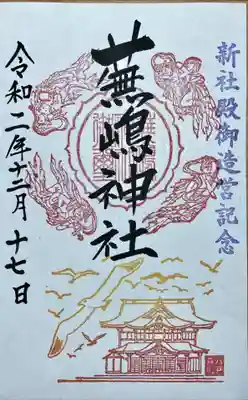 新社殿御造営記念
蕪嶋神社
令和二年十二月十七日